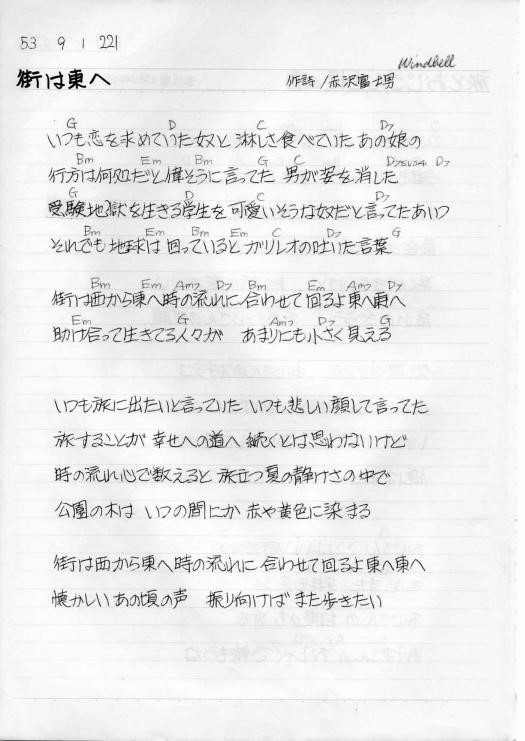 53 9 1 221
Windbell
街は東へ 作詩/赤沢富士男
G D C D7
いつも恋を求めていた奴と 淋しさ食べていた あの娘の
Bm Em Bm G C D7sus4 D7
行方は何処だと偉そうに言ってた 男が姿を消した
G D C D7
受験地獄を生きる学生を 可愛いそうな奴だと言ってたあいつ
Bm Em Bm Em C D7 G
それでも地球は 回っているとガリレオの吐いた言葉
Bm Em Am7 D7 Bm Em Am7 D7
街は西から東へ時の流れに合わせて回るよ東へ東へ
Em G Am7 D7 G
助け合って生きてる人々が あまりにも小さく見える
いつも旅に出たいと言っていた いつも悲しい顔して言ってた
旅することが 幸せへの道へ 続くとは思わないけど
時の流れ心で数えると 旅立つ夏の静けさの中で
公園の木は いつの間にか 赤や黄色に染まる
街は西から東へ時の流れに合わせて回るよ東へ東へ
懐かしいあの頃の声 振り向けば また歩きたい